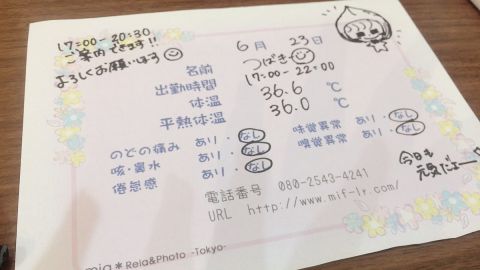 17:00-20:30
ご案内できます!!
よろしくお願いします
6月 23日
名前 つばき
出勤時間 17:00-22:00
体温 36.6 ℃
平熱体温 36.0 ℃
のどの痛み あり・なし 味覚異常 あり・なし
咳・鼻水 あり・なし 嗅覚異常 あり・なし
倦怠感 あり・なし
今日も
元気だよー
電話番号 080-2543-4241
URL http://www.mif-lr.com/
mia*Rela&Photo -Tokyo-